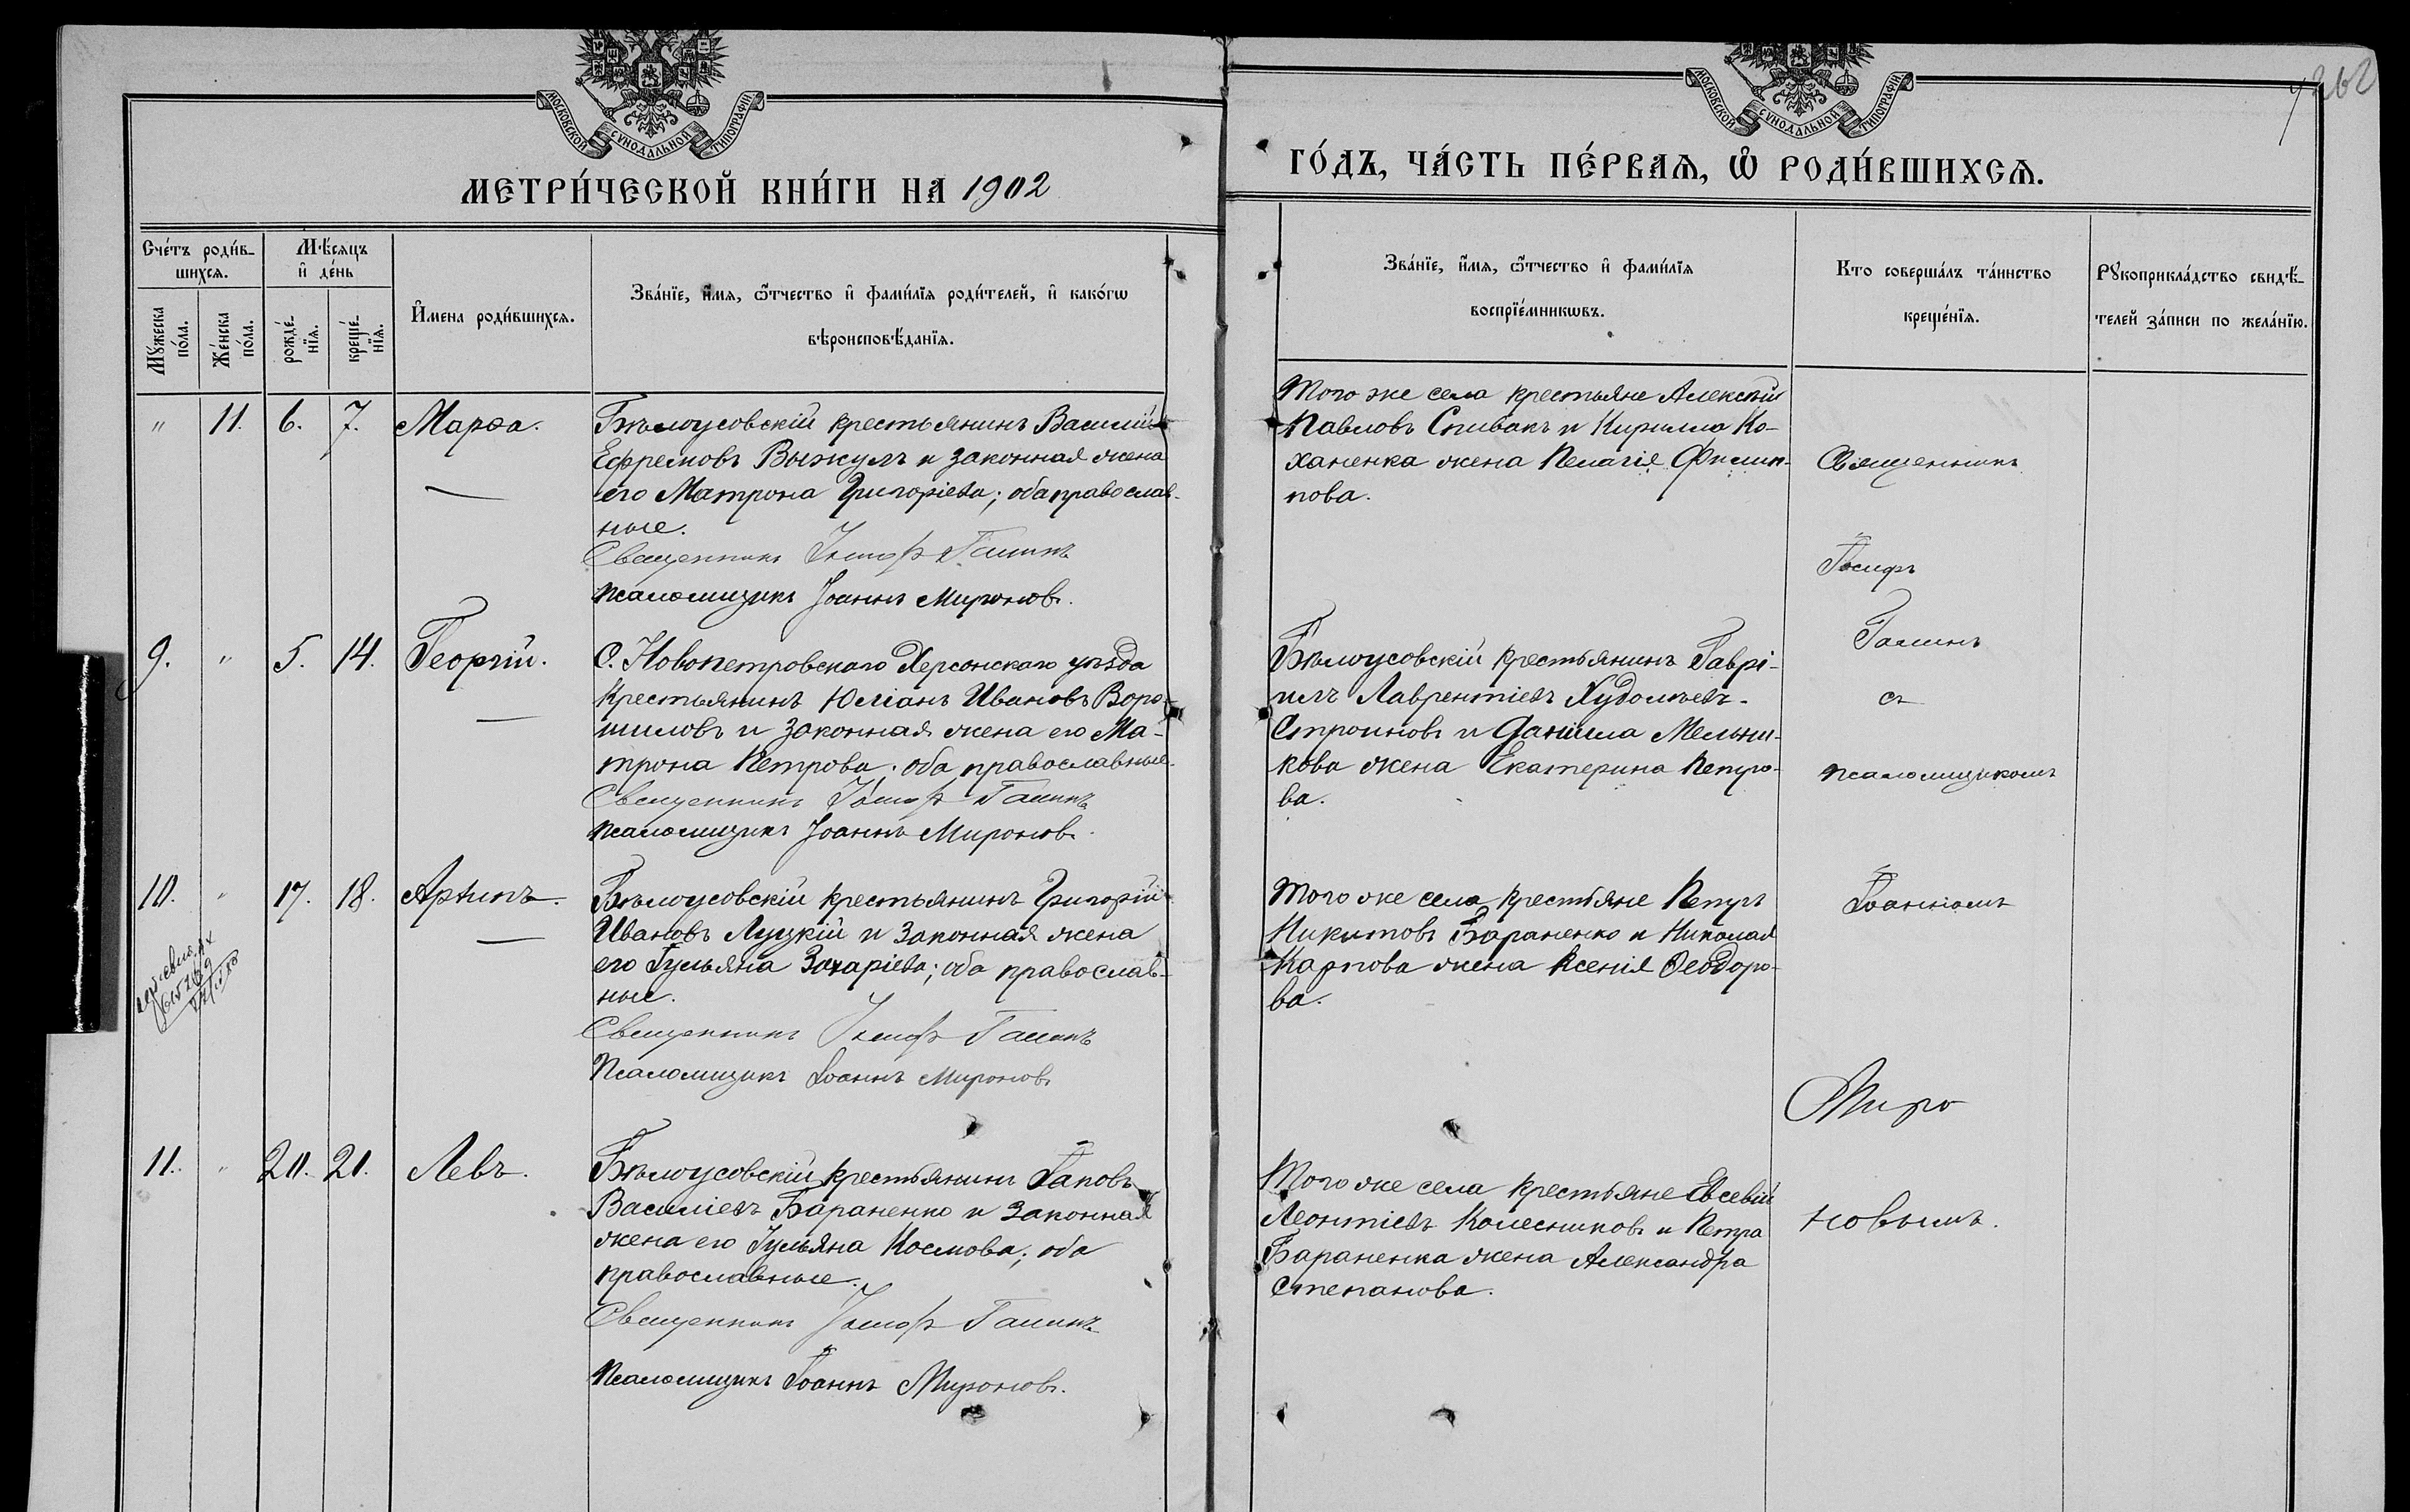 МОСКОВСКОЙ СѴНОДАЛЬНОЙ ТИПОГРАФІИ
МОСКОВСКОЙ СѴНОДАЛЬНОЙ ТИПОГРАФІИ
262
МЕТРИ́ЧЕСКОЙ КНИ́ГИ НА 1902
ГО́ДЪ, ЧА́СТЬ ПЕ́РВАѦ, Ѡ҆ РОДИ́ВШИХСѦ.
Сче́тъ роди́в-
шихсѧ.
Мѣ́сѧцъ
и҆ де́нь
И҆мена роди́вшихсѧ.
Зва́нїе, и҆́мѧ, ѻ҆́тчество и҆ фами́лїѧ роди́телей, и҆ како́гѡ
вѣроисповѣ́данїѧ.
Мꙋ́жеска
по́ла.
Же́нска
по́ла.
рожде́-
нїѧ.
креще́-
нїѧ.
Зва́нїе, и҆́мѧ, ѻ҆́тчество и҆ фами́лїѧ
воспрїе́мникѡвъ.
Кто соверша́лъ та́инство
креще́нїѧ.
Рꙋкоприкла́дство свидѣ́-
телей за́писи по жела́нїю.
" 11. 6. 7. Марѳа.
Бѣлоусовскій крестьянинъ Василій
Ефремовъ Выжулъ и законная жена
его Матрона Григоріева; оба православ-
ные.
Священникъ Іосифъ Галинъ
Псаломщикъ Іоаннъ Мироновъ.
Того же села крестьяне Алексѣй
Павловъ Спивакъ и Кирилла Ко-
ханенка жена Пелагія Филип-
пова.
9. " 5. 14. Георгій.
С. Новопетровскаго Херсонскаго уѣзда
крестьянинъ Юліанъ Ивановъ Воро-
шиловъ и законная жена его Ма-
трона Петрова; оба православные.
Священникъ Іосифъ Галинъ
Псаломщикъ Іоаннъ Мироновъ.
Бѣлоусовскій крестьянинъ Гаврі-
илъ Лаврентіевъ Худолѣевъ-
Строиновъ и Даніила Мельни-
кова жена Екатерина Петро-
ва.
10. " 17. 18. Архипъ.
Бѣлоусовскій крестьянинъ Григорій
Ивановъ Луцкій и законная жена
его Гульяна Захаріева; оба православ-
ные.
Священникъ Іосифъ Галинъ
Псаломщикъ Іоаннъ Мироновъ
Того же села крестьяне Петръ
Никитовъ Бараненко и Николая
Карпова жена Ксенія Ѳеодоро-
ва.
11. " 20. 21. Левъ.
Бѣлоусовскій крестьянинъ Іаковъ
Василіевъ Бараненко и законная
жена его Гульяна Космова; оба
православные.
Священникъ Іосифъ Галинъ
Псаломщикъ Іоаннъ Мироновъ.
Того же села крестьяне Евсевій
Леонтіевъ Колесниковъ и Петра
Бараненка жена Александра
Степанова.
Священникъ
Іосифъ
Галинъ
съ
псаломщикомъ
Іоанномъ
Миро
новымъ.